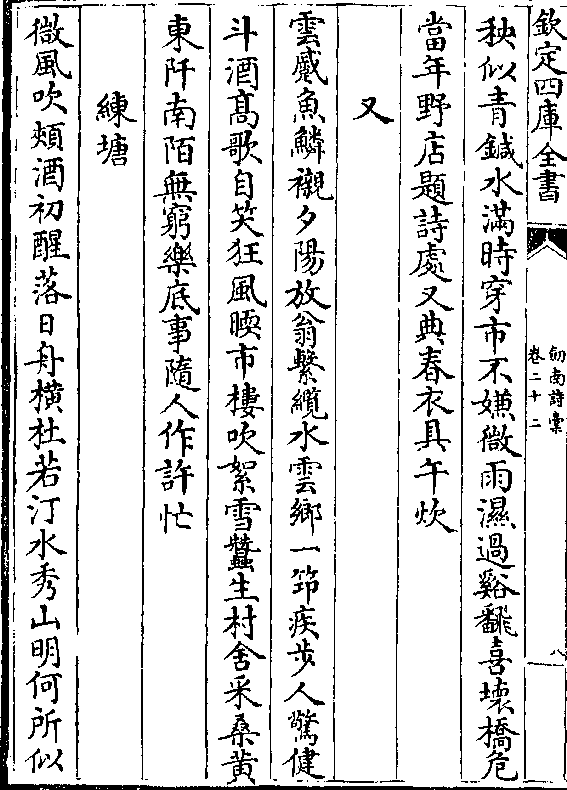 欽定四庫全書
劒南詩稾
卷二十二
八
秧似青鍼水滿時穿市不嫌微雨濕過谿翻喜壞橋危
當年野店題詩處又典春衣具午炊
又
雲蹙魚鱗襯夕陽放翁繫纜水雲鄉一笻疾步人驚健
斗酒髙歌自笑狂風暖市樓吹絮雪蠶生村舍采桑黄
東阡南陌無窮樂底事隨人作許忙
練塘
微風吹頰酒初醒落日舟橫杜若汀水秀山明何所似